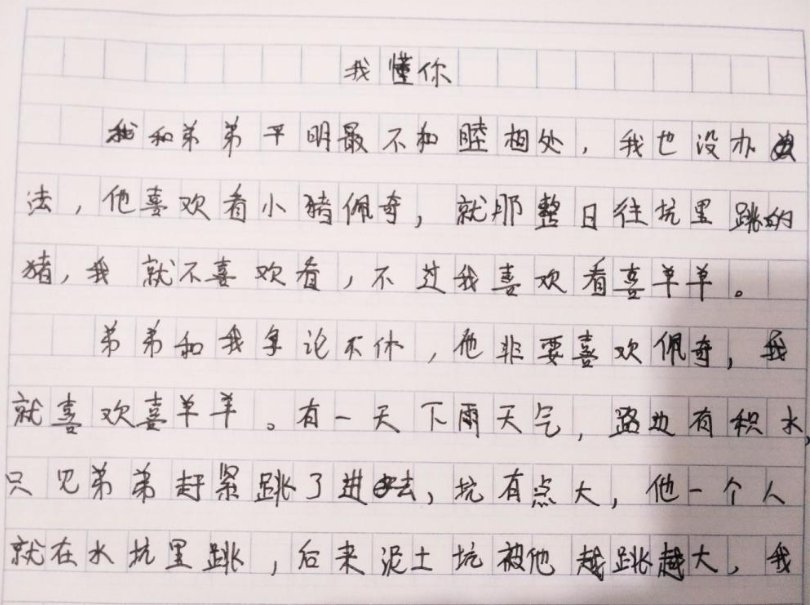 我懂你
我和弟弟平明最不和睦相处，我也没办
法，他喜欢看小猪佩奇，就那整日往坑里跳的
猪，我就不喜欢看，不过我喜欢看喜羊羊。
弟弟和我争论不休，他非要喜欢佩奇，我
就喜欢喜羊羊。有一天下雨天气，路边有积水，
只见弟弟赶紧跳了进去，坑有点大，他一个人
就在水坑里跳，后来泥土坑被他越跳越大，我